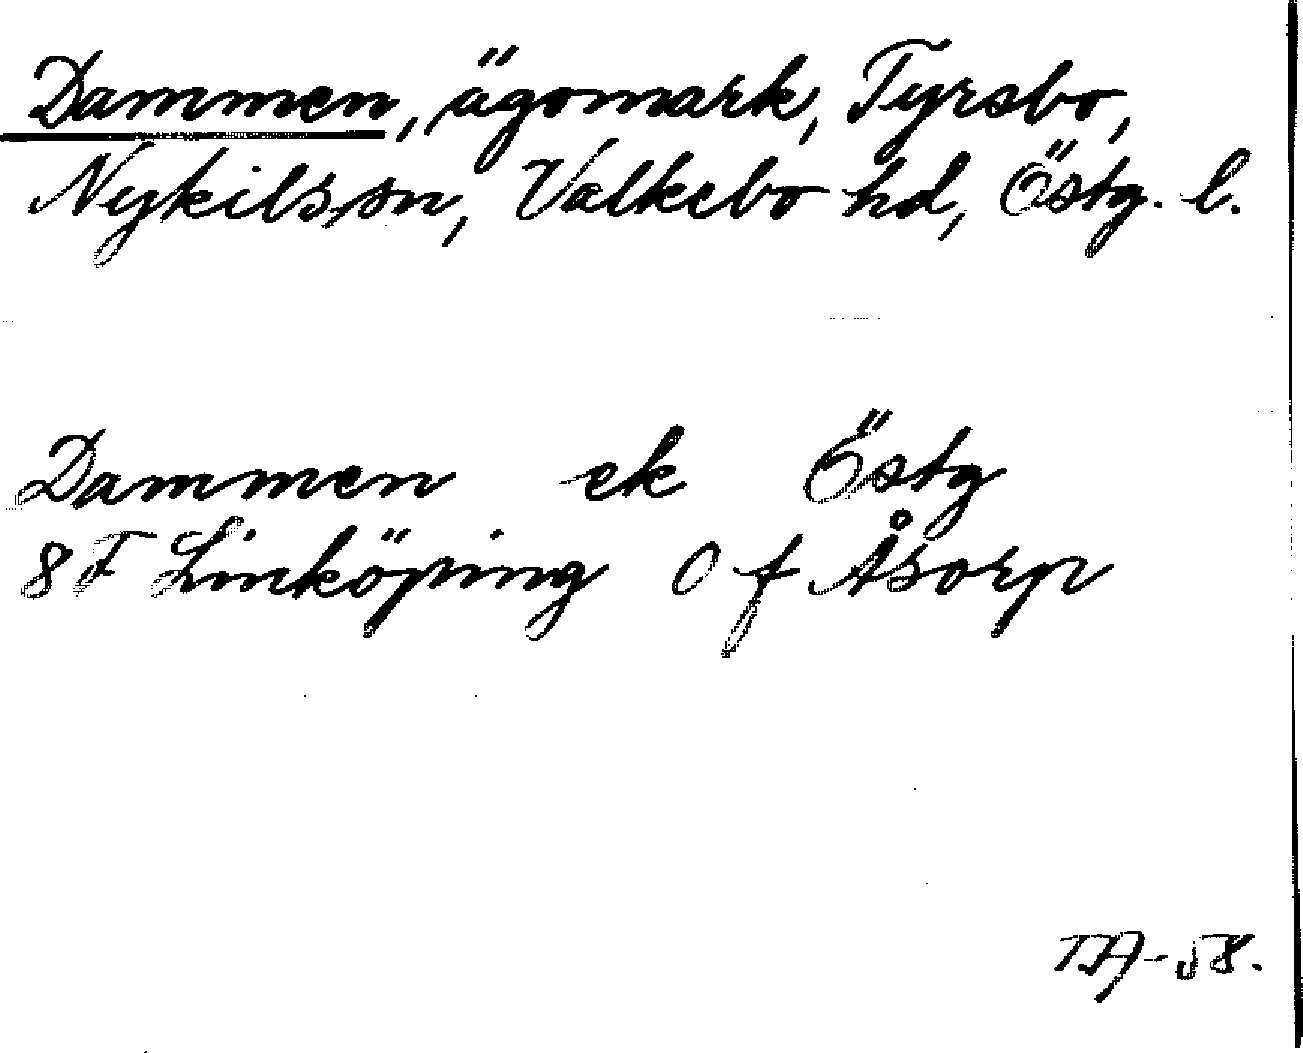 Dammen, ägomark, Tyrsbo,
Nykils sn, Valkebo hd, Östg. l.
Dammen ek Östg
8F Linköping 0 f Åsorp
TA-58.